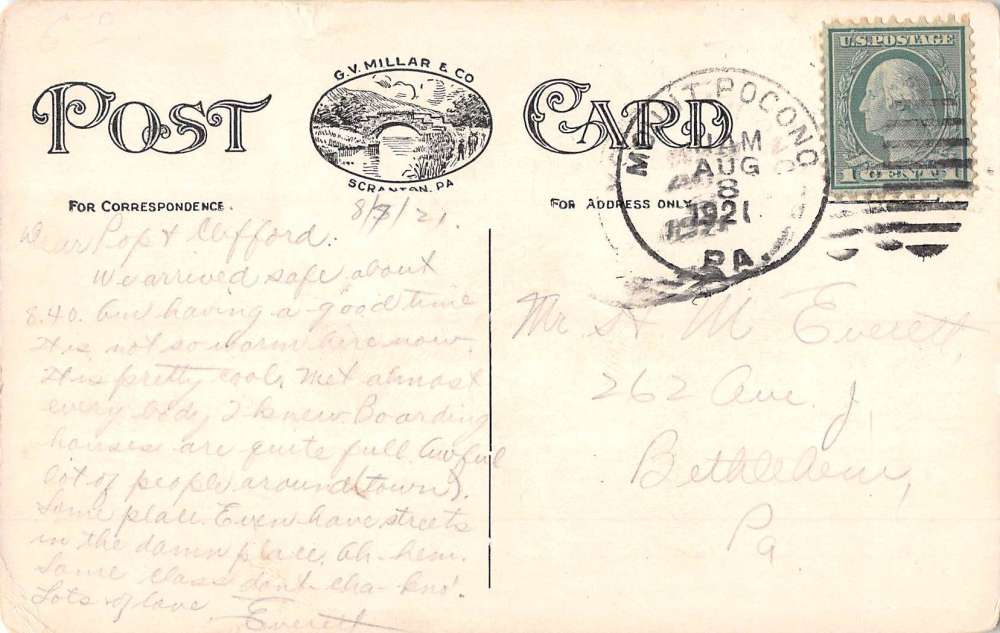 G.V. MILLAR & CO
POST CARD
SCRANTON, PA
FOR CORRESPONDENCE.
FOR ADDRESS ONLY
U.S. POSTAGE
1 CENT 1
MOUNT POCONO
AM
AUG
8
1921
PA.
8/7/21,
Dear Pop & Clifford:
We arrived safe about
8.40. Am having a good time
It is not so warm here now.
It is pretty cool, Met almost
every body I knew. Boarding
houses are quite full. Awful
lot of people around (town).
Some place. Even have streets
in the damn place, Ah-hem.
Some class dont-cha-kno'.
Lots of love Everett
Mr. H M Everett,
262 Ave. J,
Bethlehem,
Pa